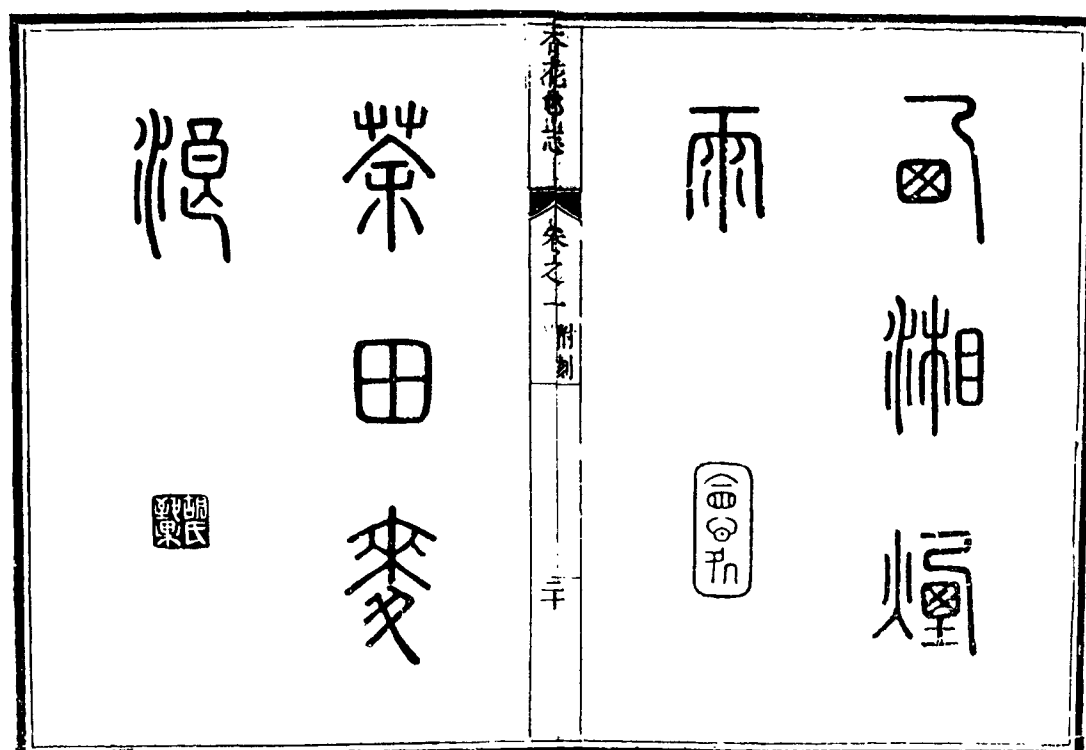 西湘煙
雨
杏花邨志 卷之一 附刻 二十
茶田麥
浪
胡氏
致果